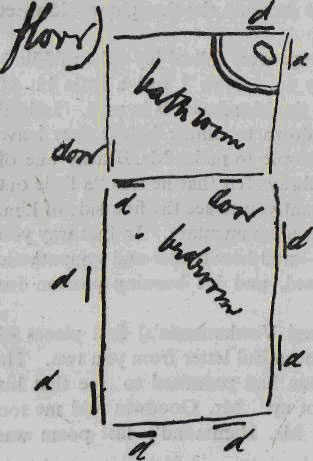 floor)
d
d
bathroom
door
d
door
bedroom
d
d
d
d
d
d